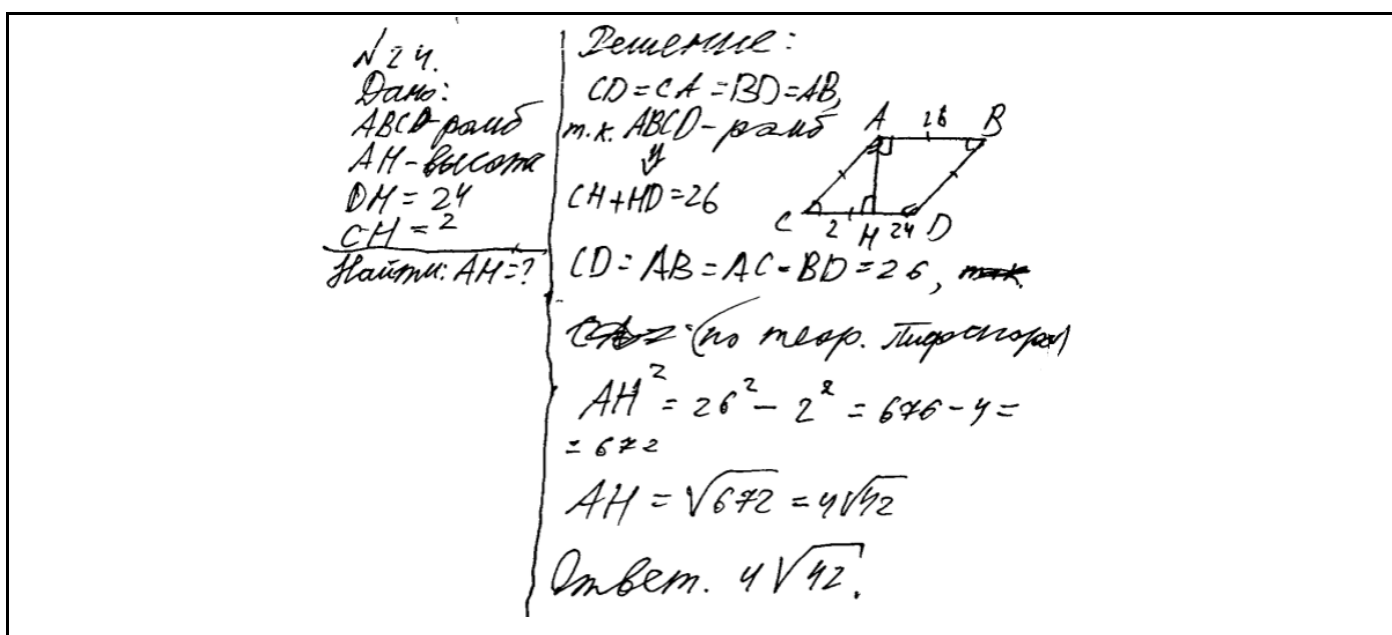 № 24.
Дано:
ABCD-ромб
AH-высота
DH = 24
CH = 2
Найти: AH=?
Решение:
CD=CA=BD=AB,
т.к. ABCD-ромб
⇓
CH+HD=26
A 26 B
C 2 H 24 D
CD=AB=AC=BD=26,
(по теор. Пифагора)
AH² = 26² - 2² = 676-4=
= 672
AH = √672 = 4√42
Ответ. 4√42.